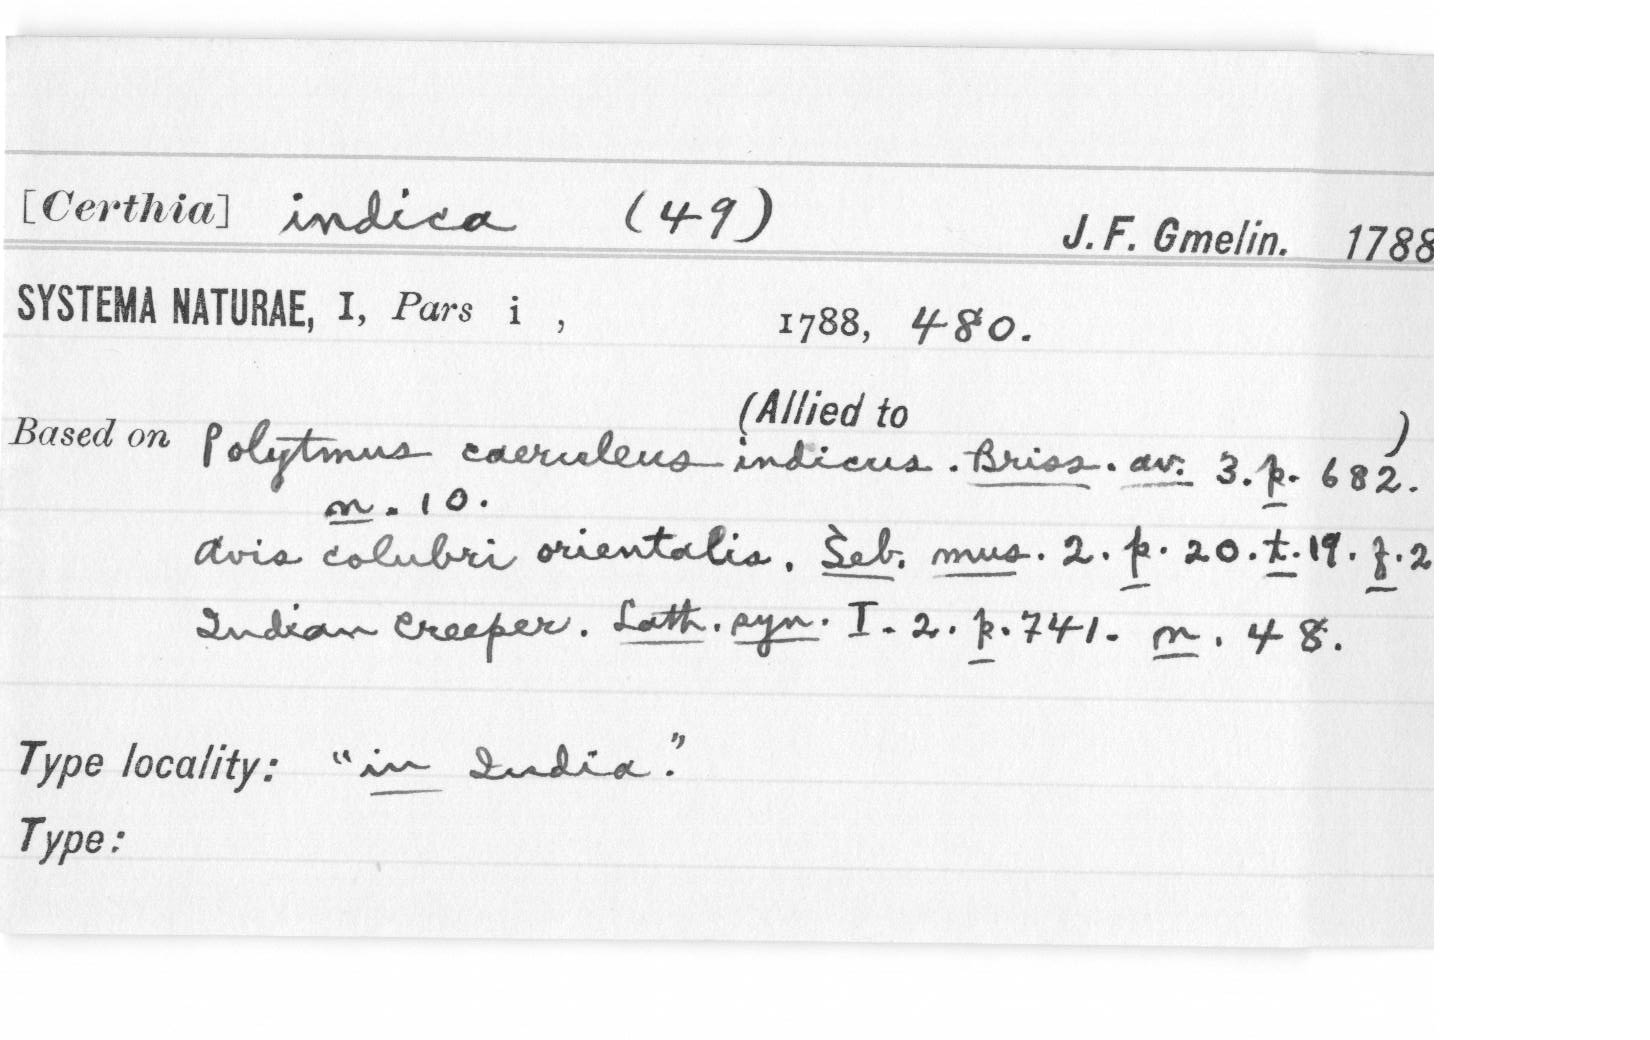 [Certhia] indica (49) J. F. Gmelin. 1788
SYSTEMA NATURAE, I, Pars i , 1788, 480.
(Allied to )
Based on Polytmus caeruleus indicus. Briss. av. 3. p. 682.
n. 10.
Avis colubri orientalis. Seb. mus. 2. p. 20. t. 19. f. 2
Indian Creeper. Lath. syn. I. 2. p. 741. n. 48.
Type locality: "in India."
Type: